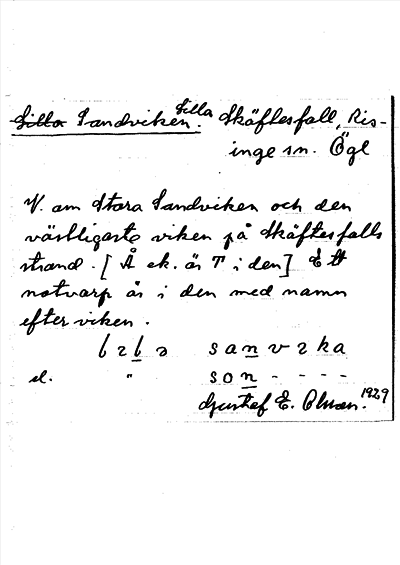 Lilla Sandviken. Lilla Skäftesfall, Ris-
inge sn. Ögl
V. om Stora Sandviken och den
västligaste viken på Skäftesfalls
strand. [Å ek. är T i den] Ett
notvarp är i den med namn
efter viken.
sanvzka
el. " son - - - -
Gustaf E. Olsson. 1929